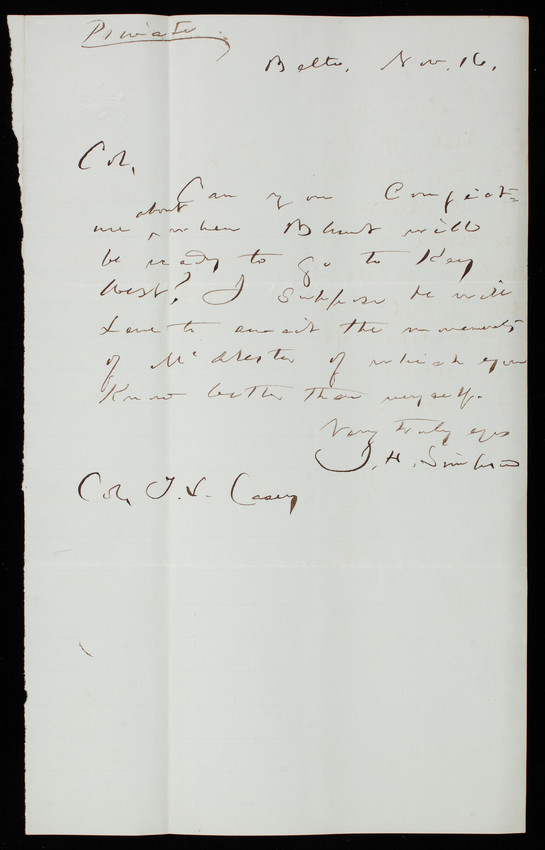 Private.
Balto, Nov. 16.
Col,
Can you Conject=
ure about when Blunt will
be ready to go to Key
West? I suppose he will
have to await the movements
of McAlester of which you
know better than myself.
Very truly yrs
J. H. Simpson
Col, T. L. Casey